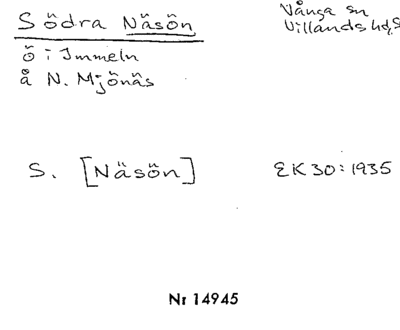 Södra Näsön
Vånga sn
Villands hd,
ö i Immeln
å N. Mjönäs
S. [Näsön]
EK 30:1935
Nr 14945